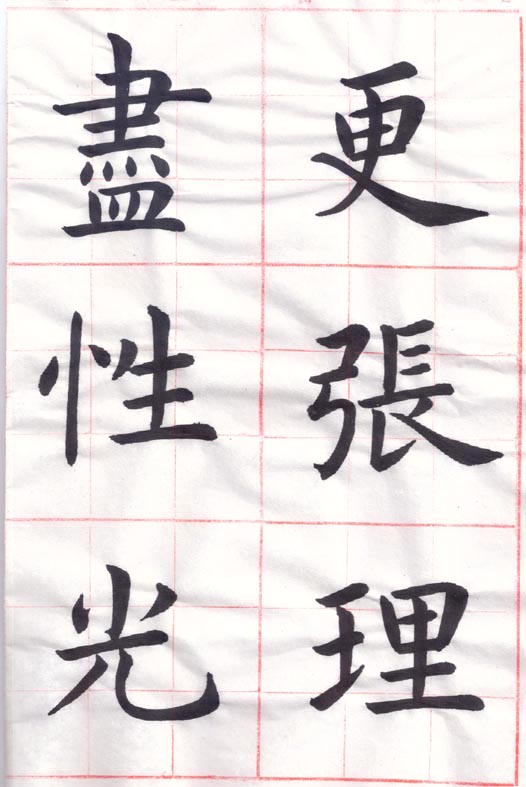 更張理
盡性光